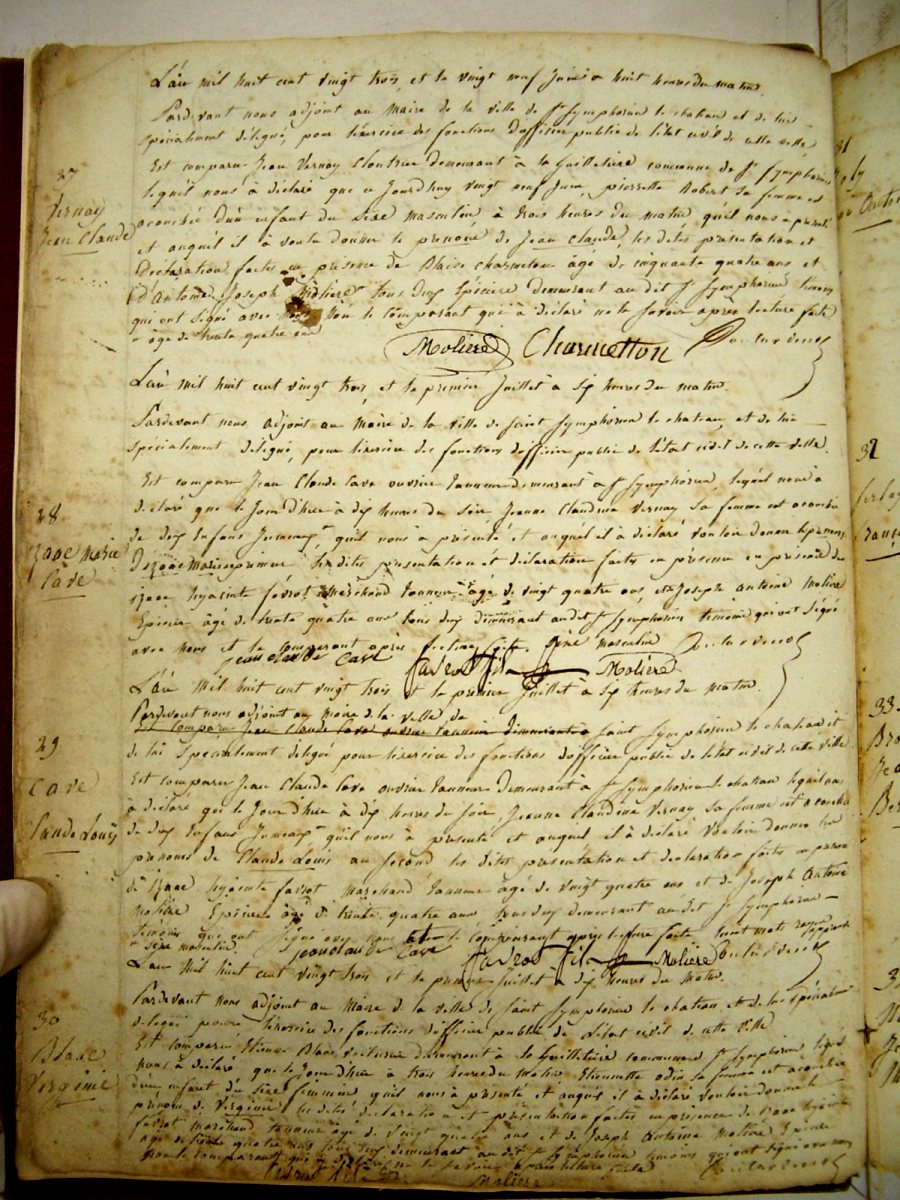 L'an mil huit cent vingt trois et le vingt neuf juin à huit heures du matin.
Pardevant nous adjoint au maire de la ville de St Symphorien le chateau et de lui
specialement délégué, pour l'exercice des fonctions d'officier public de l'état civil de cette ville
Est comparu Jean Vernay Cloutier demeurant à la Guilletiere commune de St Symphorien
lequel nous à déclaré que ce jourdhuy vingt neuf juin, pierrette Robert sa femme est
acouchée d'un enfant du sexe masculin à trois heures du matin qu'il nous a présenté
et auquel il à voulu donner le prenom de Jean Claude, les dites présentation et
Déclaration faites en presence de Blaise Charmetton âgé de cinquante quatre ans et
d'Antoine Joseph Molière tous deux Epicière demeurant au dit St Symphorien temoins
qui ont signé avec nous non le comparant qui à déclaré ne le savoir après lecture faite
âgé de trente quatre ans
37
Vernay
Jean Claude
Molière Charmetton
L'an mil huit cent vingt trois, et le premier Juillet à six heures du matin.
Pardevant nous adjoint au maire de la ville de Saint Symphorien le chateau, et de lui
spécialement délégué, pour l'exercice des fonctions d'officier public de l'état civil de cette ville.
Est comparu Jean Claude Cave ouvrier tanneur demeurant à St Symphorien, lequel nous à
déclaré que le jour d'hier à dix heures du soir Jeanne Claudine Vernay sa femme est acouchée
de deux Enfans Jumeaux qu'il nous à présenté et auquel il à déclaré vouloir donner le prenom
D'Izaac Marie premier les dites presentation et déclaration faites en présence en présence de
Izaac hyacinte favrot Marchand tanneur âgé de vingt quatre ans, et Joseph Antoine Molière
Epicier âgé de trente quatre ans tous deux demeurant audit St Symphorien temoins qui ont signé
avec nous et le comparant après lecture faite. Sexe masculin
28
Izaac Marie
Cave
jean claude Cave favrot fils Molière
L'an Mil huit cent vingt trois et le premier Juillet à six heures du matin.
Pardevant nous adjoint au Maire de la ville de
Est comparu Jean Claude Cave ouvrier tanneur demeurant à Saint Symphorien le chateau et
de lui Specialement delegué pour l'exercice des fonctions d'officier public de l'etat civil de cette ville
Est comparu Jean Claude Cave ouvrier tanneur Demeurant à St Symphorien le chateau lequel nous
à declaré que le Jour d'hier à dix heures du Soir, Jeanne Claudine Vernay Sa femme est acouché
de deux Enfans Jumeaux qu'il nous à presenté et auquel il à déclaré Vouloir donner les
prenoms de Claude Louis au second les dites presentation et declaration faites en présence
de Izaac hyacinte favrot Marchand tanneur âgé de vingt quatre ans et de Joseph Antoine
Molière Epicier âgé de trente quatre ans tous deux demeurant au dit St Symphorien
temoins qui ont signé avec nous et le comparant après lecture faite
Sexe masculin
29
Cave
Claude Louis
jean claude Cave favrot fils Molière
L'an Mil huit cent vingt trois et le premier Juillet à dix heures du matin.
Pardevant nous adjoint au Maire de la ville de Saint Symphorien le chateau et de lui spécialement
delegué pour l'exercice des fonctions d'officier public de l'état civil de cette ville
Est comparu Etienne Blanc voiturier demeurant à la Guilletiere commune de St Symphorien lequel
nous à déclaré que le Jour d'hier à trois heures du matin Etiennette odin sa femme est acouchée
d'un enfant du sexe féminin qu'il nous à présenté et auquel il à déclaré vouloir donner le
prénom de Virginie les dites déclaration et présentation faites en présence de Izaac hyacinte
favrot marchand tanneur âgé de vingt quatre ans et de Joseph Antoine Molière Epicier
âgé de trente quatre ans tous deux demeurant audit St Symphorien temoins qui ont signé avec nous
non le comparant qui à déclaré ne le savoir après lecture faite
30
Blanc
Virginie
favrot fils Molière
31
32
33